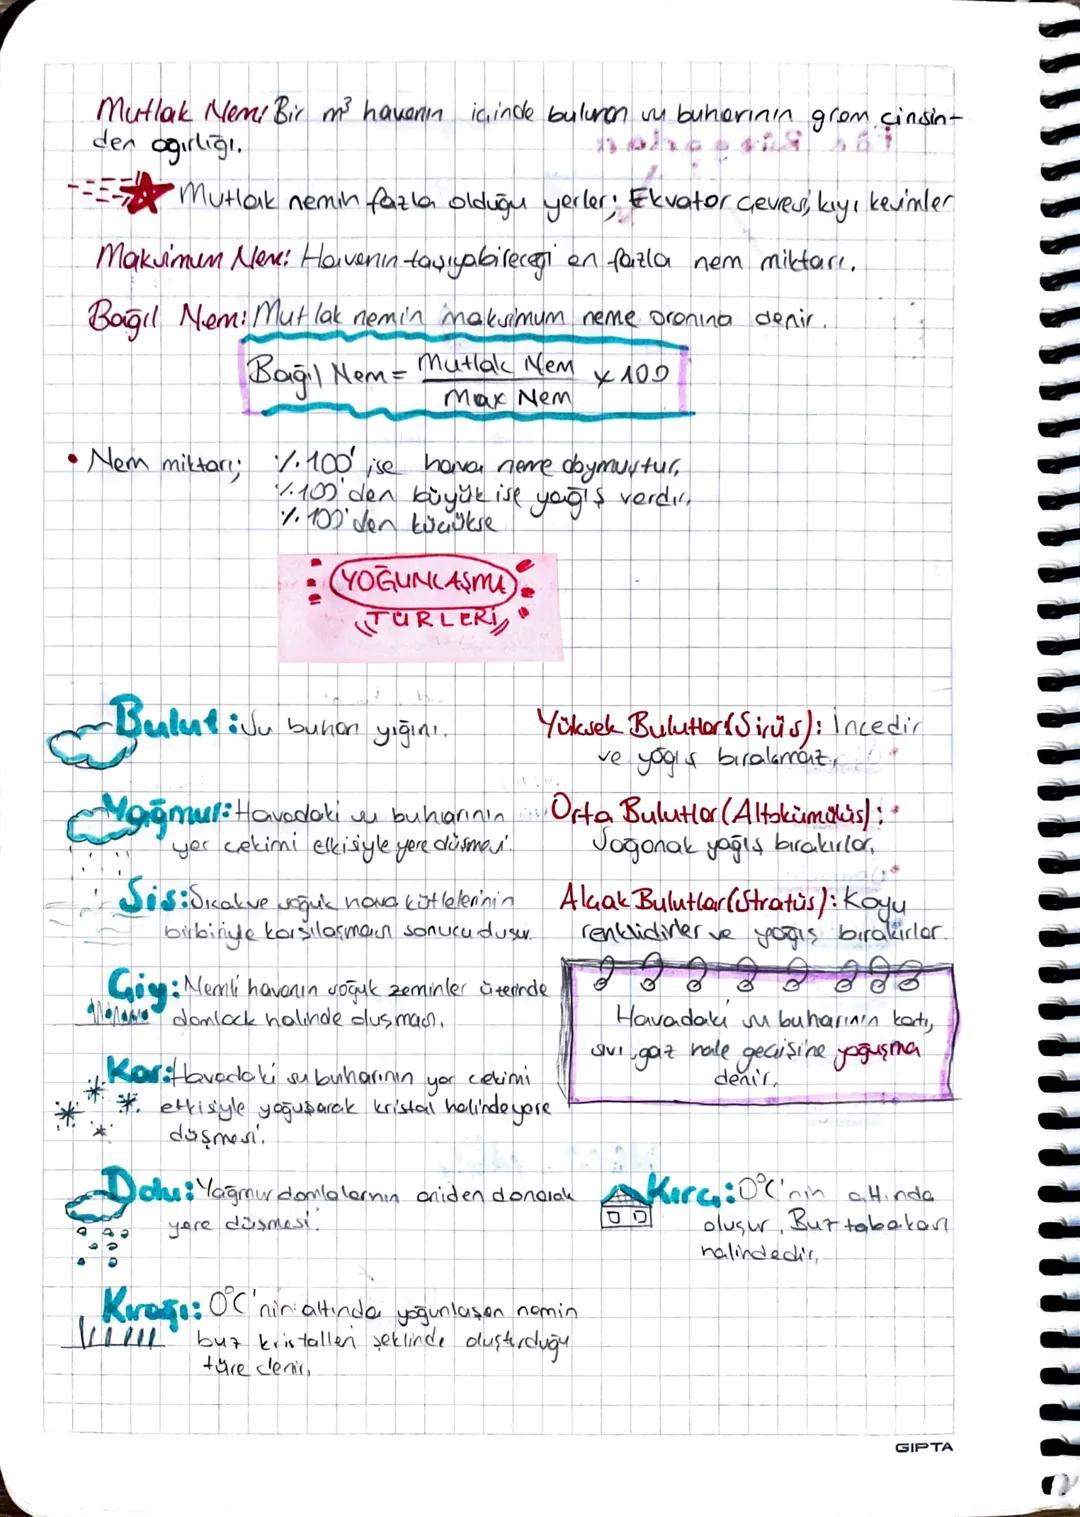 Mutlak Nem: Bir m³ havanın içinde bulunan su buharının gram cinsin-
den ağırlığı.
Mutlak nemin fazla olduğu yerler; Ekvator çevresi, kıyı kesimler
Maksimum Nem: Havanın taşıyabileceği en fazla nem miktarı.
Bağıl Nem: Mutlak nemin maksimum neme oranına denir.
Bağıl Nem = Mutlak Nem x 100
Max Nem
• Nem miktarı; %100' ise hava neme doymuştur,
%100'den büyük ise yağış vardır,
%100'den küçükse
YOĞUNLAŞMA
TÜRLERİ
Bulut: Su buharı yığını.
Yağmur: Havadaki su buharının
yer çekimi etkisiyle yere düşmesi.
Sis: Sıcak ve soğuk hava kütlelerinin
birbiriyle karşılaşması sonucu oluşur.
Çiy: Nemli havanın soğuk zeminler üzerinde
damlacık halinde oluşması.
Kar: Havadaki su buharının yer çekimi
etkisiyle yoğuşarak kristal halinde yere
düşmesi.
Dolu: Yağmur damlalarının aniden donarak
yere düşmesi.
Kırağı: 0°C'nin altında yoğunlaşan nemin
buz kristalleri şeklinde oluşturduğu
türe denir,
Yüksek Bulutlar (Sirüs): İncedir
ve yağış bırakmaz,
Orta Bulutlar (Altokümülüs):
Sağanak yağış bırakırlar,
Alçak Bulutlar (Stratüs): Koyu
renklidirler ve yağış bırakırlar.
Havadaki su buharının katı,
sıvı, gaz hale geçişine yoğuşma
denir,
Kırç: 0°C'nin altında
oluşur. Buz tabakası
halindedir,
GIPTA